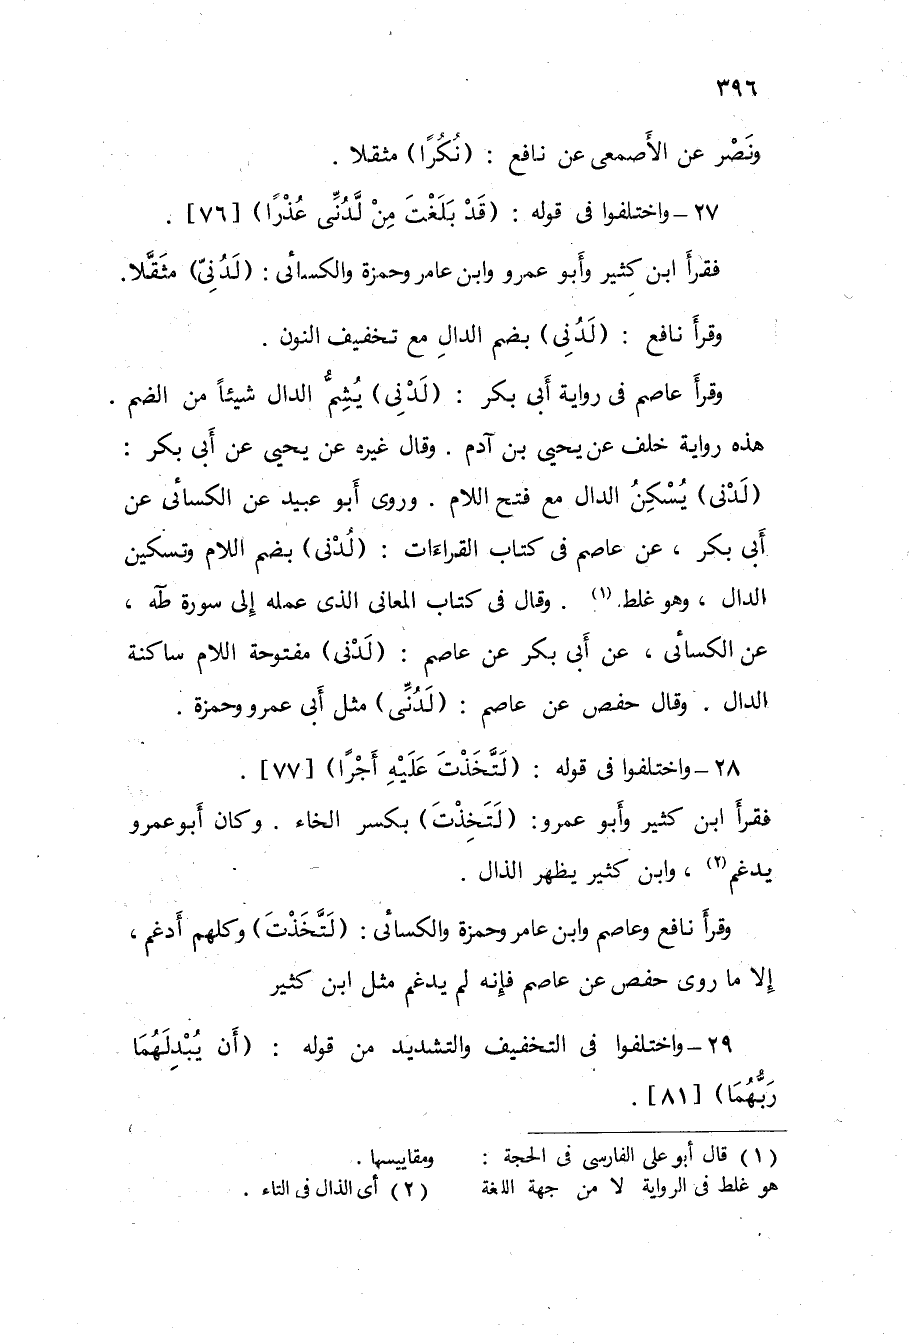 ٣٩٦
ونَصْر عن الأَصمعى عن نافع : (نُكُرًا) مثقلا .
٢٧ – واختلفوا فى قوله : (قَدْ بَلَغْتَ مِنْ لَّدُنِّى عُذْرًا) [٧٦] .
فقرأَ ابن كثير وأَبو عمرو وابن عامر وحمزة والكسائى : (لَدُنِّى) مثَقَّلا.
وقرأَ نافع : (لَدُنِى) بضم الدال مع تخفيف النون .
وقرأَ عاصم فى رواية أَبى بكر : (لَدْنِى) يُشِمُّ الدال شيئاً من الضم .
هذه رواية خلف عن يحيى بن آدم . وقال غيره عن يحيى عن أَبى بكر :
(لَدْنى) يُسْكِنُ الدال مع فتح اللام . وروى أَبو عبيد عن الكسائى عن
أَبى بكر ، عن عاصم فى كتاب القراءَات : (لُدْنى) بضم اللام وتسكين
الدال ، وهو غلط.(١) . وقال فى كتاب المعانى الذى عمله إلى سورة طٓه ،
عن الكسائى ، عن أَبى بكر عن عاصم : (لَدْنى) مفتوحة اللام ساكنة
الدال . وقال حفص عن عاصم : (لَدُنِّى) مثل أَبى عمرو وحمزة .
٢٨ – واختلفوا فى قوله : (لَتَّخَذْتَ عَلَيْهِ أَجْرًا) [٧٧] .
فقرأَ ابن كثير وأَبو عمرو: (لَتَخِذْتَ) بكسر الخاء . وكان أَبوعمرو
يدغم(٢) ، وابن كثير يظهر الذال .
وقرأَ نافع وعاصم وابن عامر وحمزة والكسائى : (لَتَّخَذْتَ) وكلهم أَدغم ،
إلا ما روى حفص عن عاصم فإنه لم يدغم مثل ابن كثير
٢٩ – واختلفوا فى التخفيف والتشديد من قوله : (أَن يُبْدِلَهُمَا
رَبُّهُمَا) [٨١] .
(١) قال أبو على الفارسى فى الحجة :
هو غلط فى الرواية لا من جهة اللغة
ومقاييسها .
(٢) أى الذال فى التاء .